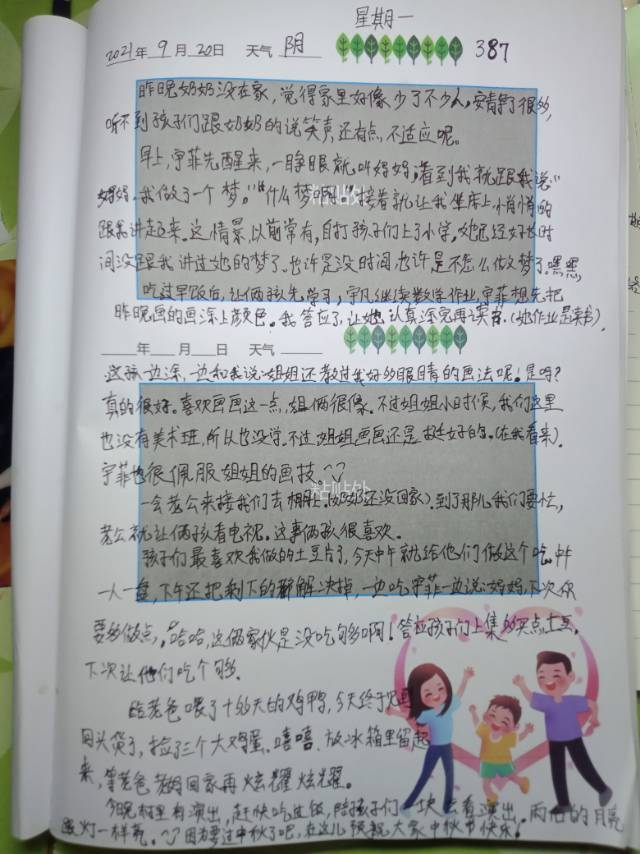 星期一
2021年 9月 20日 天气 阴 387
昨晚奶奶没在家，觉得家里好像少了不少人，安静了很多，
听不到孩子们跟奶奶的说笑声，还有点不适应呢。
早上，宇菲先醒来，一睁眼就叫妈妈，看到我就跟我说“
妈妈，我做了一个梦。”“什么梦啊”接着就让我坐床上小悄悄的
粘贴处
跟我讲起来。这情景以前常有，自打孩子们上了小学，她已经好长时
间没跟我讲过她的梦了。也许是没时间也许是不怎么做梦了。嘿嘿。
吃过早饭后，让俩孩先学习，宇凡继续数学作业，宇菲想先把
昨晚画的画涂上颜色。我答应了，让她认真涂完再读书。(她作业是读书)．
年 月 日 天气
这孩边涂，边和我说：姐姐还教过我好的眼睛的画法呢！是吗？
真的很好。喜欢画画这一点，姐俩很像。不过姐姐小时候，我们这里
也没有美术班，所以也没学。不过姐姐画画还是挺好的。(在我看来)．
宇菲也很佩服姐姐的画技。^^
粘贴处
一会老公来接我们去棚里。(奶奶还没回家)．到了那儿我们要忙，
老公就让俩孩看电视。这事俩孩很喜欢。
孩子们最喜欢我做的土豆片了，今天中午就给他们做这个吃。中午
一人一盘，下午还把剩下的都解决掉，一边吃宇菲一边说：妈妈，下次你
要多做点，哈哈，这俩家伙是没吃够啊！答应孩子们上集多买点土豆，
下次让他们吃个够。
老爸喂了十多天的鸡鸭，今天终于见到
回头货了，捡了三个大鸡蛋。嘻嘻．放冰箱里留起
来，等老爸老妈回家再炫耀炫耀。
今晚村里有演出，赶快吃过饭，陪孩子们一块去看演出。雨后的月亮
灯一样亮。^^因为要过中秋了吧，在这儿预祝大家中秋节快乐！